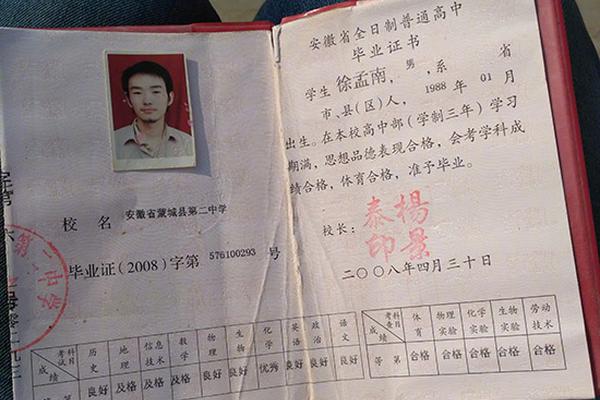 校 名 安徽省蒙城县第二中学
毕业证(2008)字第 576100293 号
第二中学
考试科目 历史 地理 信息技术 数学 物理 生物 化学 英语 政治 语文
成绩 良好 及格 及格 及格 良好 良好 优秀 良好 良好 良好
安徽省全日制普通高中
毕业证书
学生 徐孟南,男,系 省
市、县(区)人, 1988 年 01 月
出生。在本校高中部(学制三年)学习
期满,思想品德表现合格,会考学科成
绩合格,体育合格,准予毕业。
校长: 楊景泰印
二〇〇八年四月三十日
考查科目 体育 物理实验 化学实验 生物实验 劳动技术
成绩 等第 合格 合格 合格 合格 合格